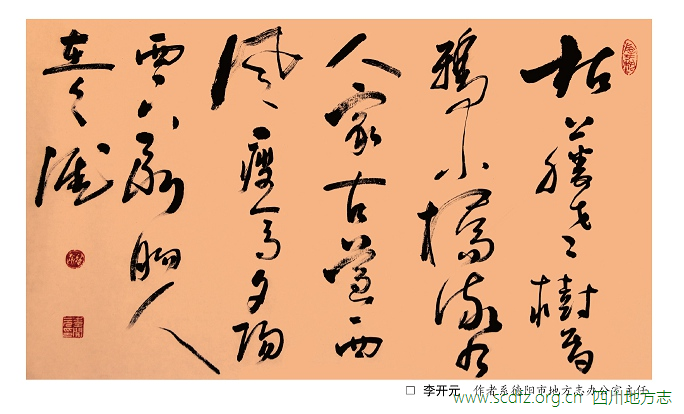 枯藤老樹昏
鴉小橋流水
人家古道西
風瘦馬夕陽
西下斷腸人
在天涯
□ 李开元 作者系德阳市地方志办公室主任
www.scdfz.org.cn 四川地方志